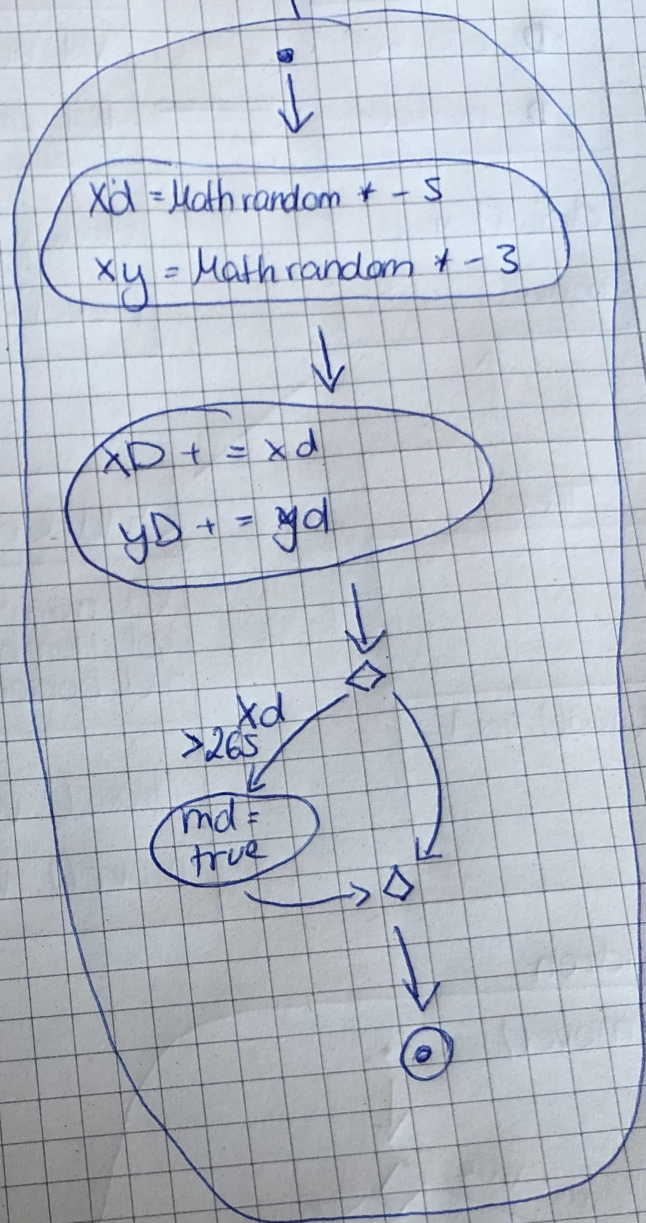 xd = Math random * - 5
xy = Math random * - 3
xD + = xd
yD + = yd
xd
>265
md =
true